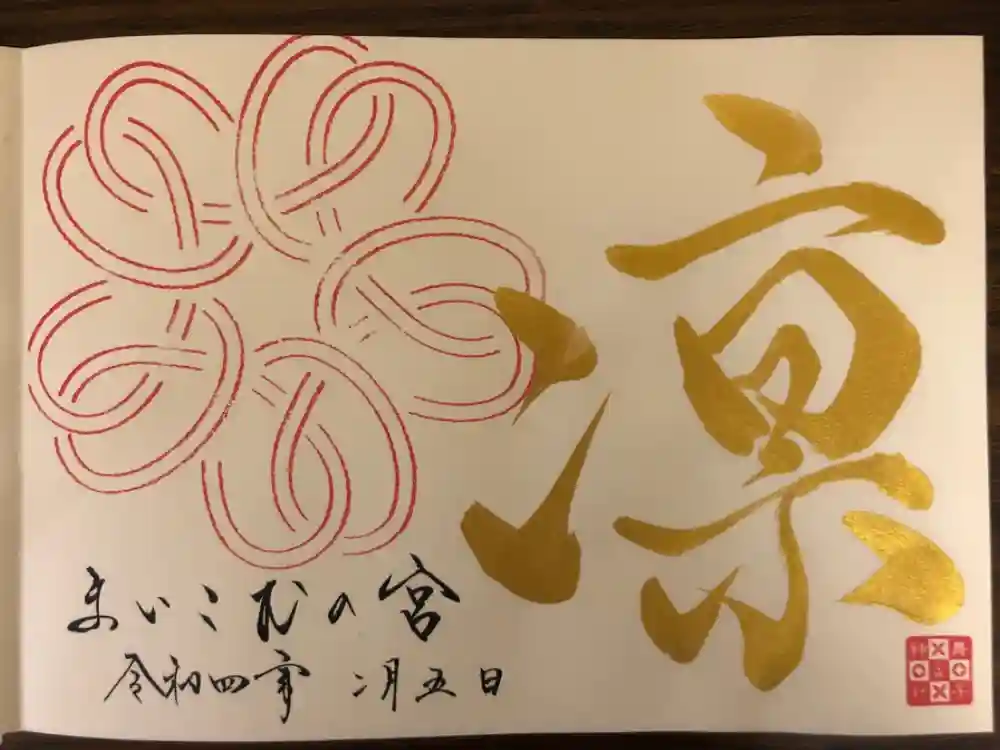 凜
まいこむの宮
令和四年 二月五日